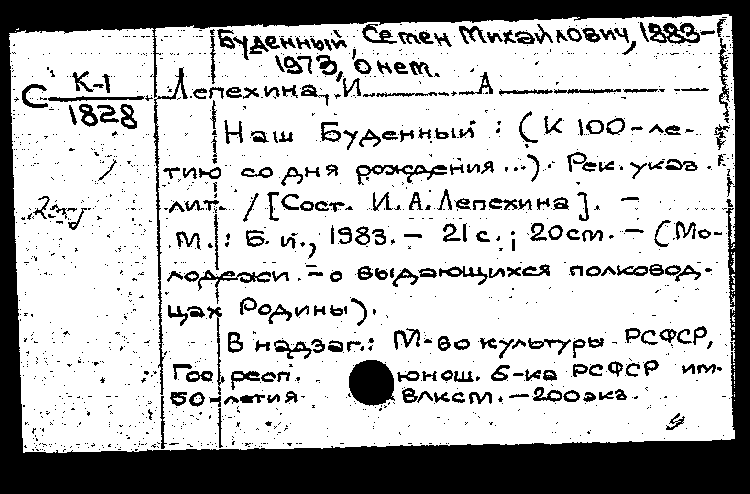 Буденный, Семен Михайлович, 1883-
1973, о нем.
С К-1
1828
Лепехина, И. А.
Наш Буденный : (К 100-ле-
тию со дня рождения...). Рек. указ.
лит. / [Сост. И. А. Лепехина]. —
М. : Б. и., 1983. — 21 с. ; 20 см. — (Мо-
лодежи — о выдающихся полковод-
цах Родины).
В надзаг.: М-во культуры РСФСР,
Гос. респ. юнош. б-ка РСФСР им.
50-летия ВЛКСМ. — 200 экз.